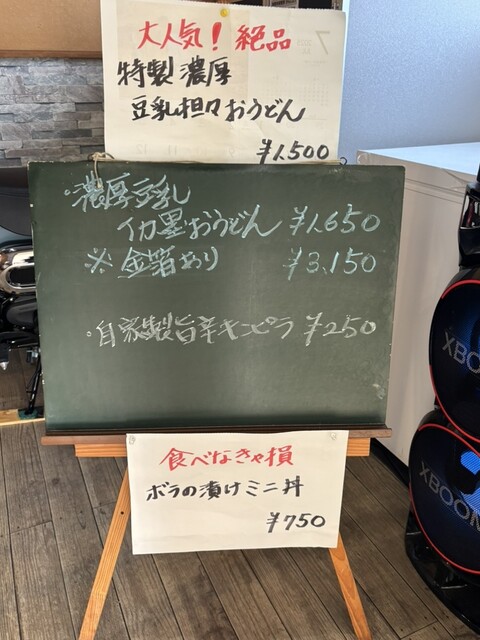 大人気！絶品
特製濃厚
豆乳担々おうどん
¥1,500
・濃厚豆乳
イカ墨おうどん ¥1,650
※金箔あり ¥3,150
・自家製旨辛キンピラ ¥250
食べなきゃ損
ボラの漬けミニ丼
¥750
7
XBOOM
XBOOM